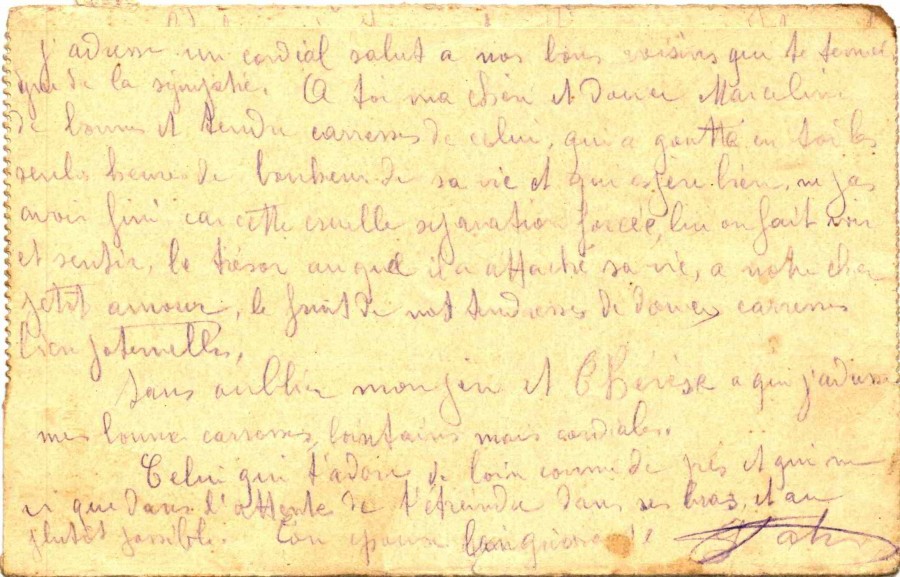 j'adresse un cordial salut a nos bons voisins qui te temoi
gne de la sympatie. A toi ma chère et douce Marceline
de bonnes et tendre carresses de celui, qui a goutté en toi les
seules heures de bonheur de sa vie et qui espère bien ne pas
avoir fini car cette cruelle separation forcée, lui on fait voir
et sentir, le trésor auquel il a attaché sa vie, a notre cher
petit amour, le fruit de nos tendresses de douces carresses
bien paternelles,
sans oublier mon et Thérèse a qui j'adresse
mes bonnes carresses, lointaines mais cordiales.
Celui qui t'adore de loin comme de près et qui ne
vi que dans l'attente de t'étreindre dans ses bras, et au
plutôt possible. Ton epoux